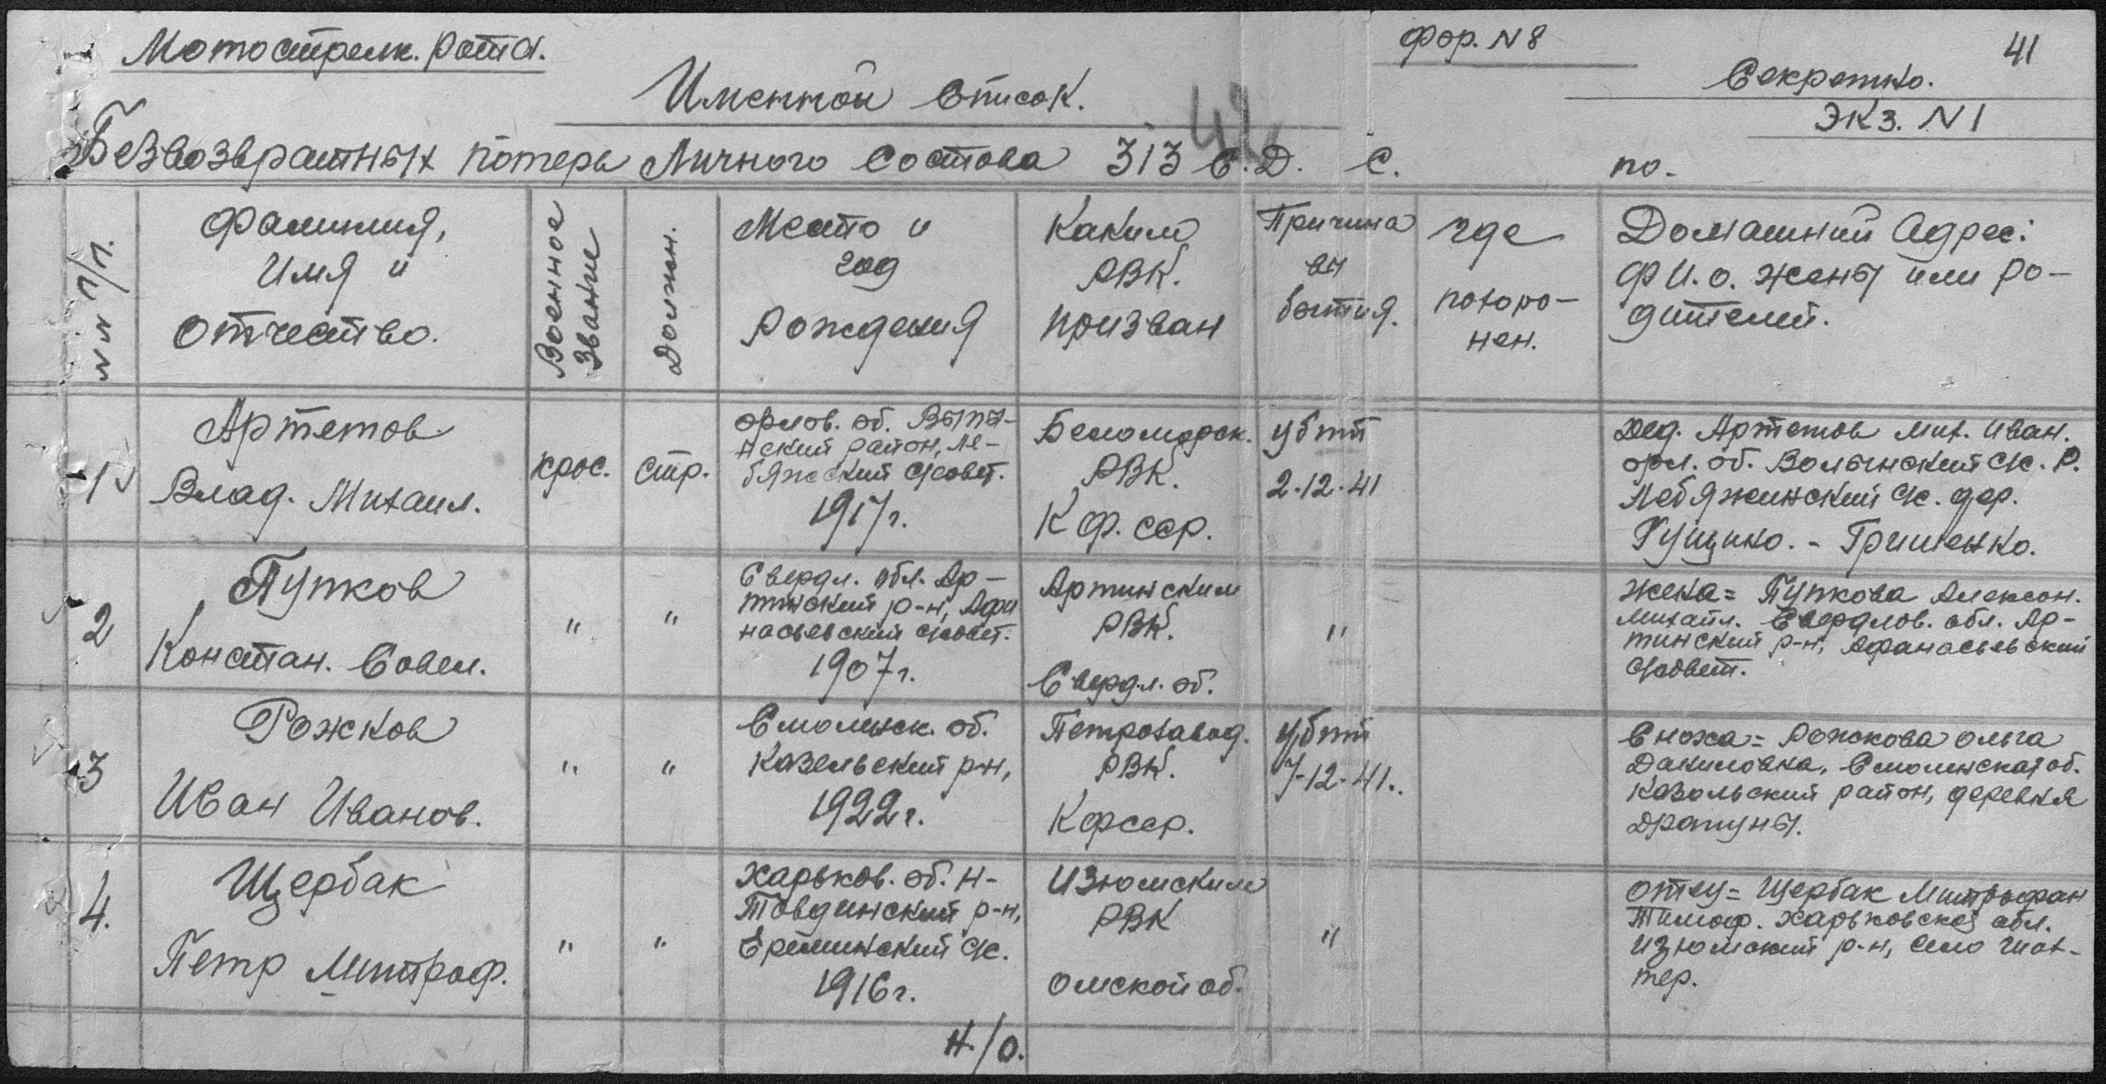 Мотострелк. рота.
фор. N 8
41
Секретно.
Экз. N 1
Именной Список.
42
Безвозвратных потерь Личного Состава 313 С.Д. С. по-
NN п/п.
Фамилия,
Имя и
отчество.
Военное
звание
Должн.
Место и
год
рождения
Каким
РВК.
призван
Причина
вы
бытия.
где
похоро-
нен.
Домашний Адрес:
Ф И.О. жены или ро-
дителей.
1
Артемов
Влад. Михаил.
крас.
стр.
орлов. об. Волын-
нский район, Ле-
бяжский с/совет.
1917 г.
Беломорск.
РВК.
К Ф. сср.
убит
2-12-41
дед. Артемов Мих. Иван.
орл. об. Волынский ск. р.
Лебяжинский с/с. дер.
Гущино. - Гришенко.
2
Пупков
Констан. Савел.
"
"
Свердл. обл. Ар-
тинский р-н, Афа
насьевский с/совет.
1907 г.
Артинским
РВК.
Свердл. об.
"
жена = Пупкова Алексан.
Михайл. Свердлов. обл. Ар-
тинский р-н, Афанасьевский
с/совет.
3
Рожков
Иван Иванов.
"
"
Смоленск. об.
Казельский р-н,
1922 г.
Петрозавод.
РВК.
Кфсср.
убит
7-12-41.
Сноха = Рожкова Ольга
Даниловна, Смоленская об.
Казельский район, деревня
Драгуны.
4.
Щербак
Петр Митроф.
"
"
Харьков. об. Н-
Товдинский р-н,
Ереминский с/с.
1916 г.
Изюмским
РВК
Омской об.
"
отец = Щербак Митрофан
Тимоф. Харьковской обл.
Изюмский р-н, село Шах-
тер.
н/о.